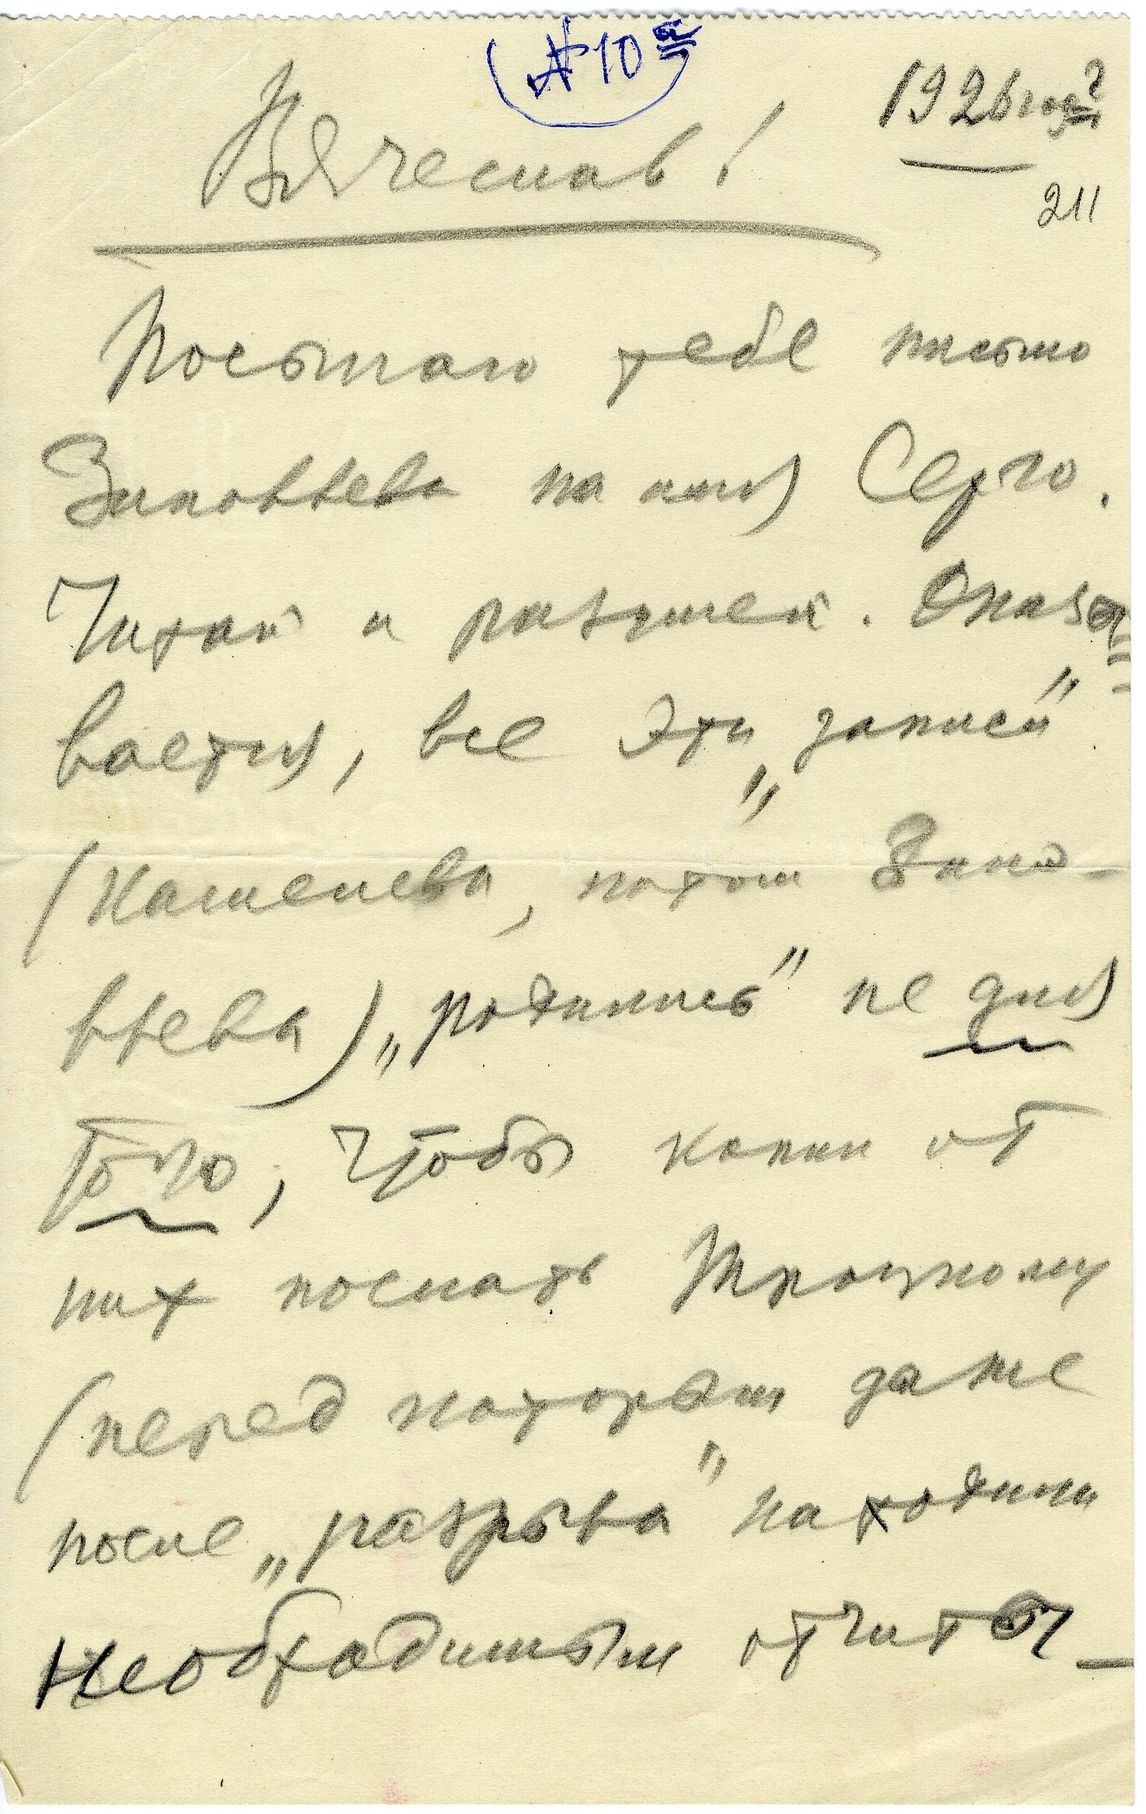 № 10а
1926 год?
211
Вячеслав!
Посылаю тебе письмо
Зиновьева на имя Серго.
Читай и разумей. Оказы-
вается, все эти „записи"
(Каменева, потом Зино-
вьева) „родились" не для
того, чтобы копии от
них послать Троцкому
(перед которым даже
после „разрыва" находили
необходимым отчиты-